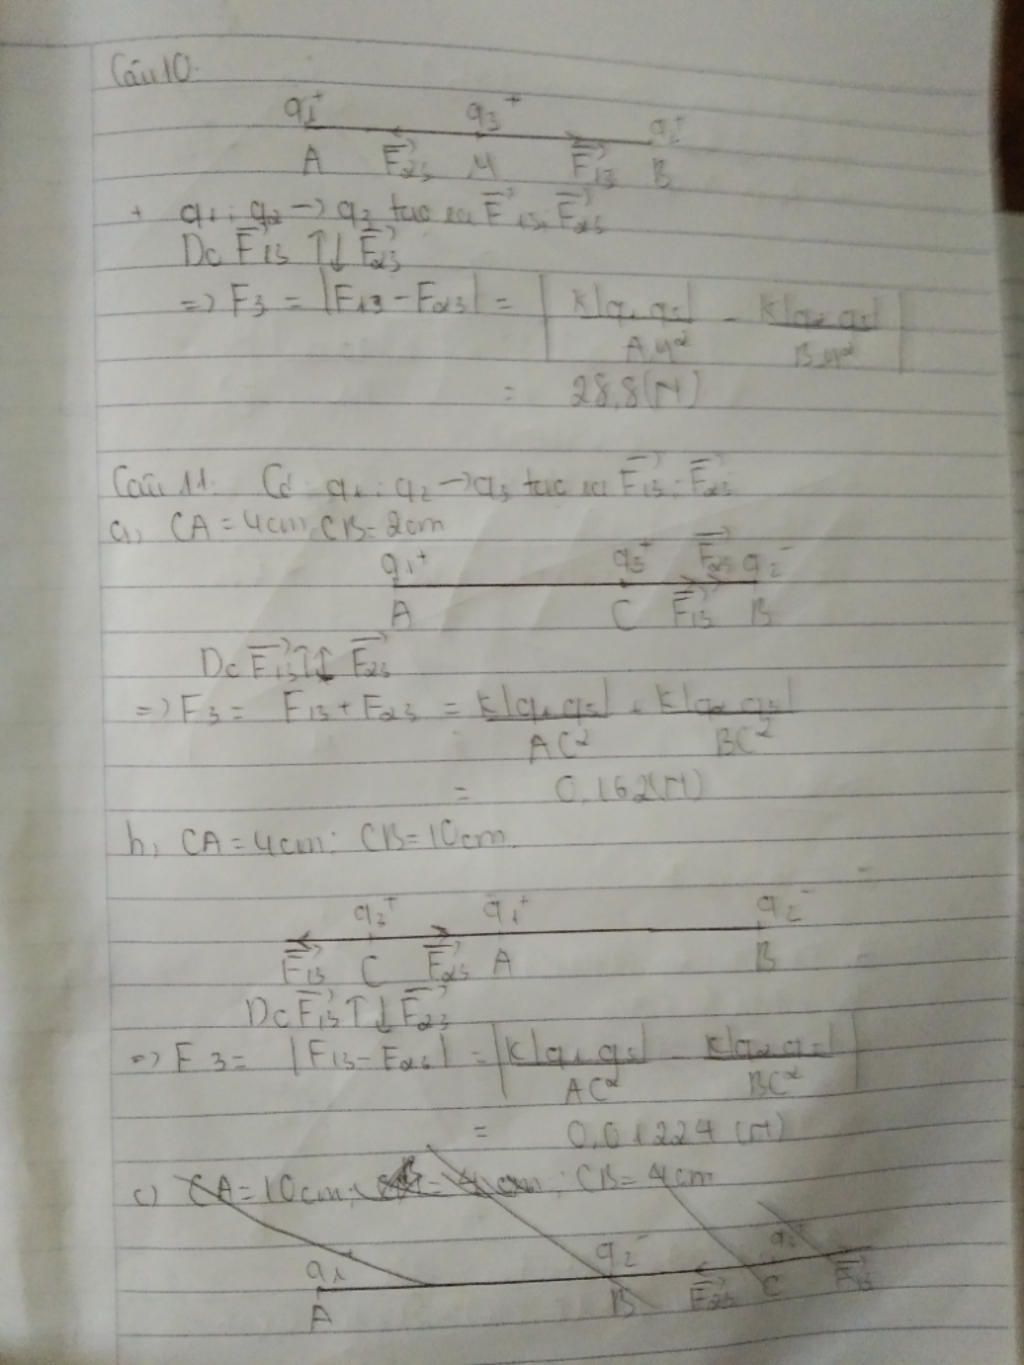 Câu 10.
q₁⁺ q₃⁺ q₂⁻
A F₂₃ M F₁₃ B
+ q₁; q₂ → q₃ tác
Do F₁₃ ↑↓ F₂₃
=> F₃ = |F₁₃ - F₂₃| = | K|q₁ q₃| / AM² - K|q₂ q₃| / BM² |
= 28,8 (N)
Câu 11. Có q₁; q₂ → q₃ tác F₁₃; F₂₃
a, CA = 4cm CB = 2cm
q₁⁺ q₃⁺ F₂₃ q₂⁻
A C F₁₃ B
Do F₁₃ F₂₃
=> F₃ = F₁₃ + F₂₃ = K|q₁ q₃| / AC² + K|q₂ q₃| / BC²
= 0,162 (N)
b, CA = 4cm; CB = 10cm.
q₃⁺ q₁⁺ q₂⁻
F₁₃ C F₂₃ A B
Do F₁₃ ↑↓ F₂₃
=> F₃ = |F₁₃ - F₂₃| = | K|q₁ q₃| / AC² - K|q₂ q₃| / BC² |
= 0,01224 (N)
c) CA = 10cm; CB = 4cm
q₁ q₂⁻
A B F₂₃ C F₁₃